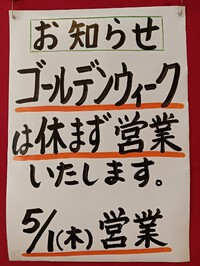 お知らせ
ゴールデンウィーク
は休まず営業
いたします。
5/1(木)営業